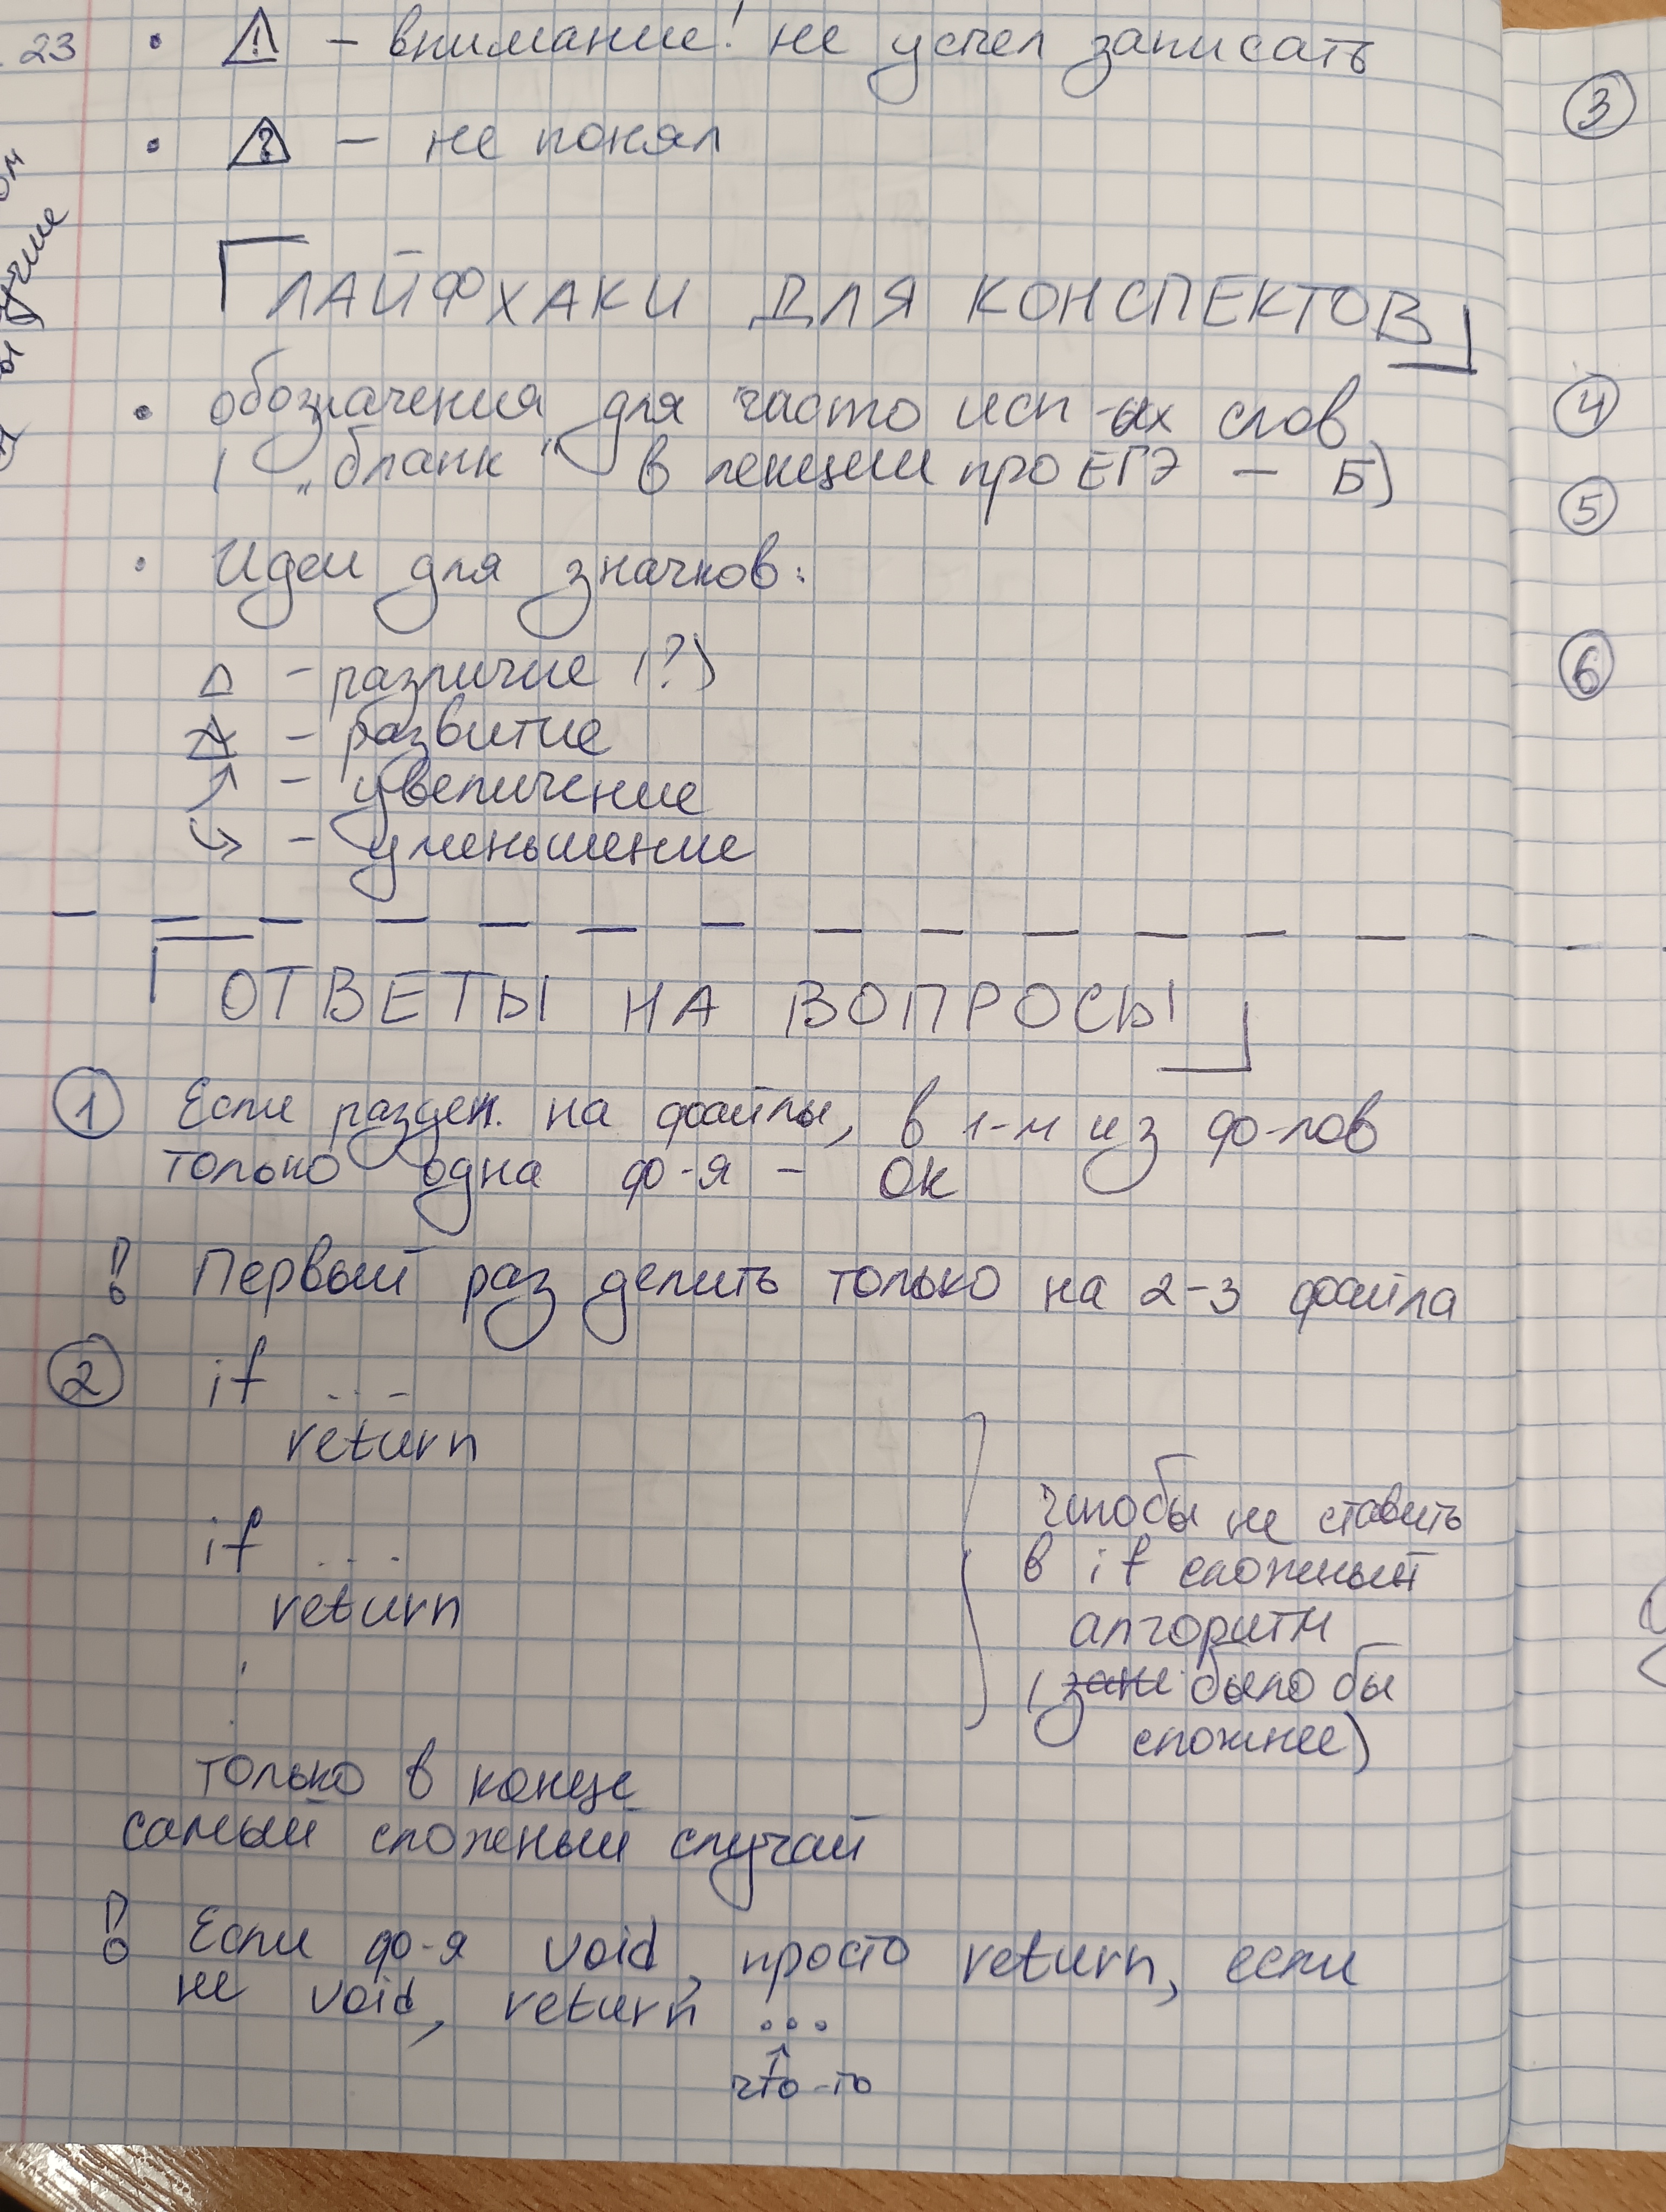 23
• ⚠ – внимание! не успел записать
• – не понял
ЛАЙФХАКИ ДЛЯ КОНСПЕКТОВ
• обозначения для часто исп-ых слов
( „бланк“ в лекции про ЕГЭ – Б)
• Идеи для значков:
△ – различие (?)
– развитие
↗ – увеличение
↘ – уменьшение
ОТВЕТЫ НА ВОПРОСЫ
① Если раздел. на файлы, в 1-м из ф-лов
только одна ф-я – ок
! Первый раз делить только на 2-3 файла
② if ...
return
if ...
return
чтобы не ставить
в if сложный
алгоритм
( было бы
сложнее)
только в конце
самый сложный случай
! Если ф-я void, просто return, если
не void, return ...
↑
что-то
③
④
⑤
⑥